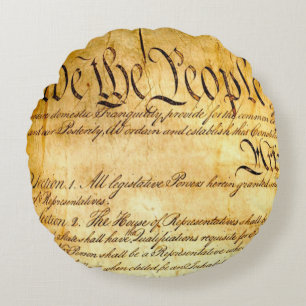 We the People
domestic Tranquility, provide for the common
our Posterity, do ordain and establish this Constit
Section 1. All legislative Powers herein granted
Representatives.
Section 2. The House of Representatives shall
State shall have the Qualifications requisite for
Person shall be a Representative who
when elected, be an Inhabit